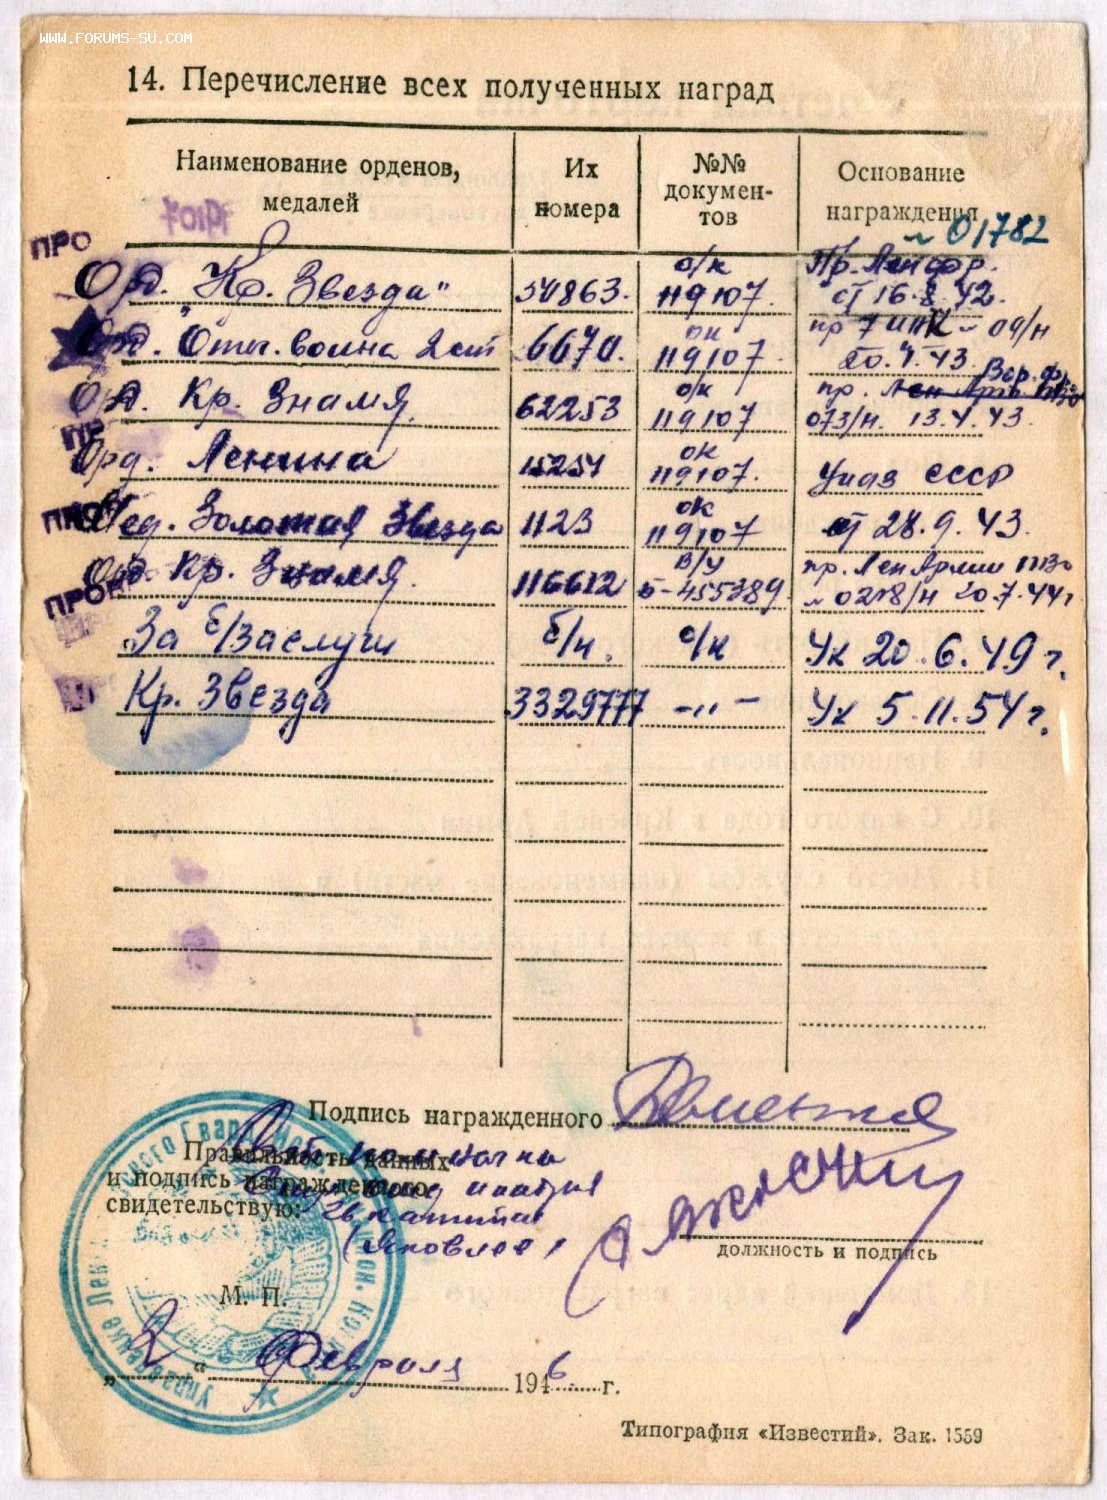 WWW.FORUMS-SU.COM
14. Перечисление всех полученных наград
Наименование орденов, медалей
Их номера
№№ докумен-тов
Основание награждения
№ 01782
ПРО
Орд. "Кр. Звезда" 54863. о/к 119107. Пр. Ленфр. от 16.8.42.
Орд. Отеч. война 2 ст 6670. ок 119107. пр 7 ИАК № 09/н 20.4.43.
Орд. Кр. Знамя 62253 о/к 119107 пр. 073/н. 13.4.43.
Орд. Ленина 15254 ок 119107. Указ СССР
Мед. Золотая Звезда 1123 ок 119107 от 28.9.43.
Орд. Кр. Знамя. 116612 в/у Б-455389. пр. Лен Армии ПВО № 0218/н 20.7.44г
За б/заслуги б/н. о/к Ук 20.6.49 г.
Кр. Звезда 3329777 -"- Ук 5.11.54 г.
Подпись награжденного
Правильность данных
и подпись награжденного
свидетельствую:
капитан
(Яковлев)
должность и подпись
М. П.
„2“ Февраля 1946 г.
Типография «Известий». Зак. 1559